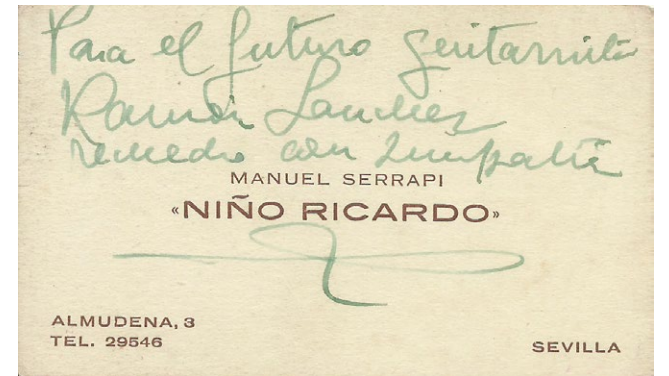 Para el futuro guitarrista
Ramón Sanchez
recuerdo con simpatía
MANUEL SERRAPI
«NIÑO RICARDO»
ALMUDENA, 3
TEL. 29546
SEVILLA